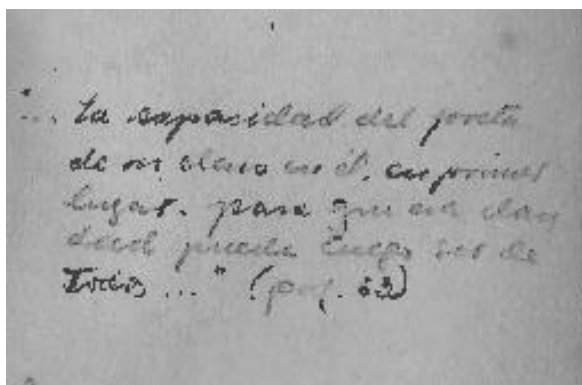 "... la capasidad del poeta
de ver claro en él, en primer
lugar, para que esa clari
dad pueda luego ser de
todos ..." (pag. 63)